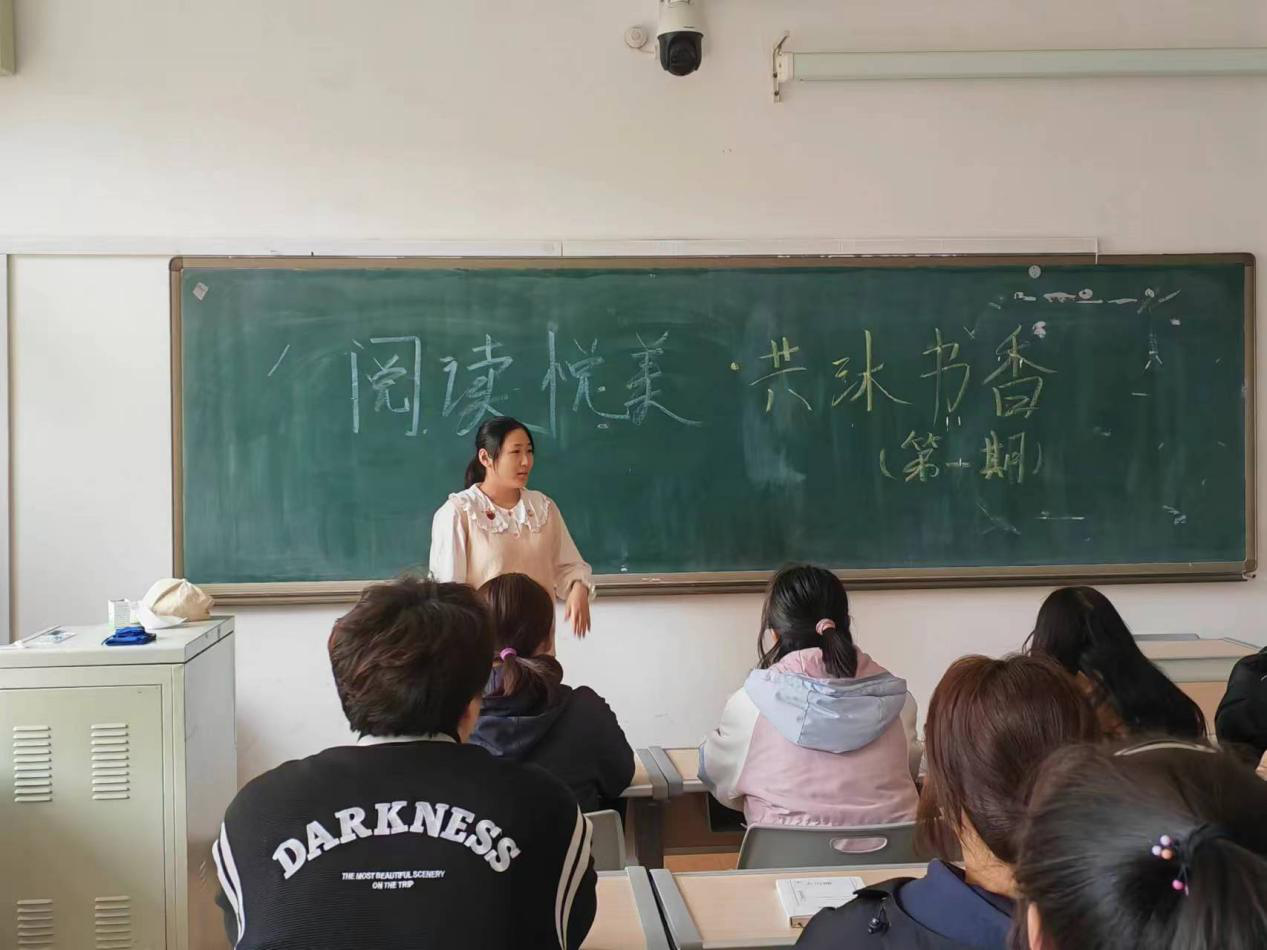 阅读悦美·共沐书香
（第一期）
DARKNESS
THE MOST BEAUTIFUL SCENERY
ON THE TRIP